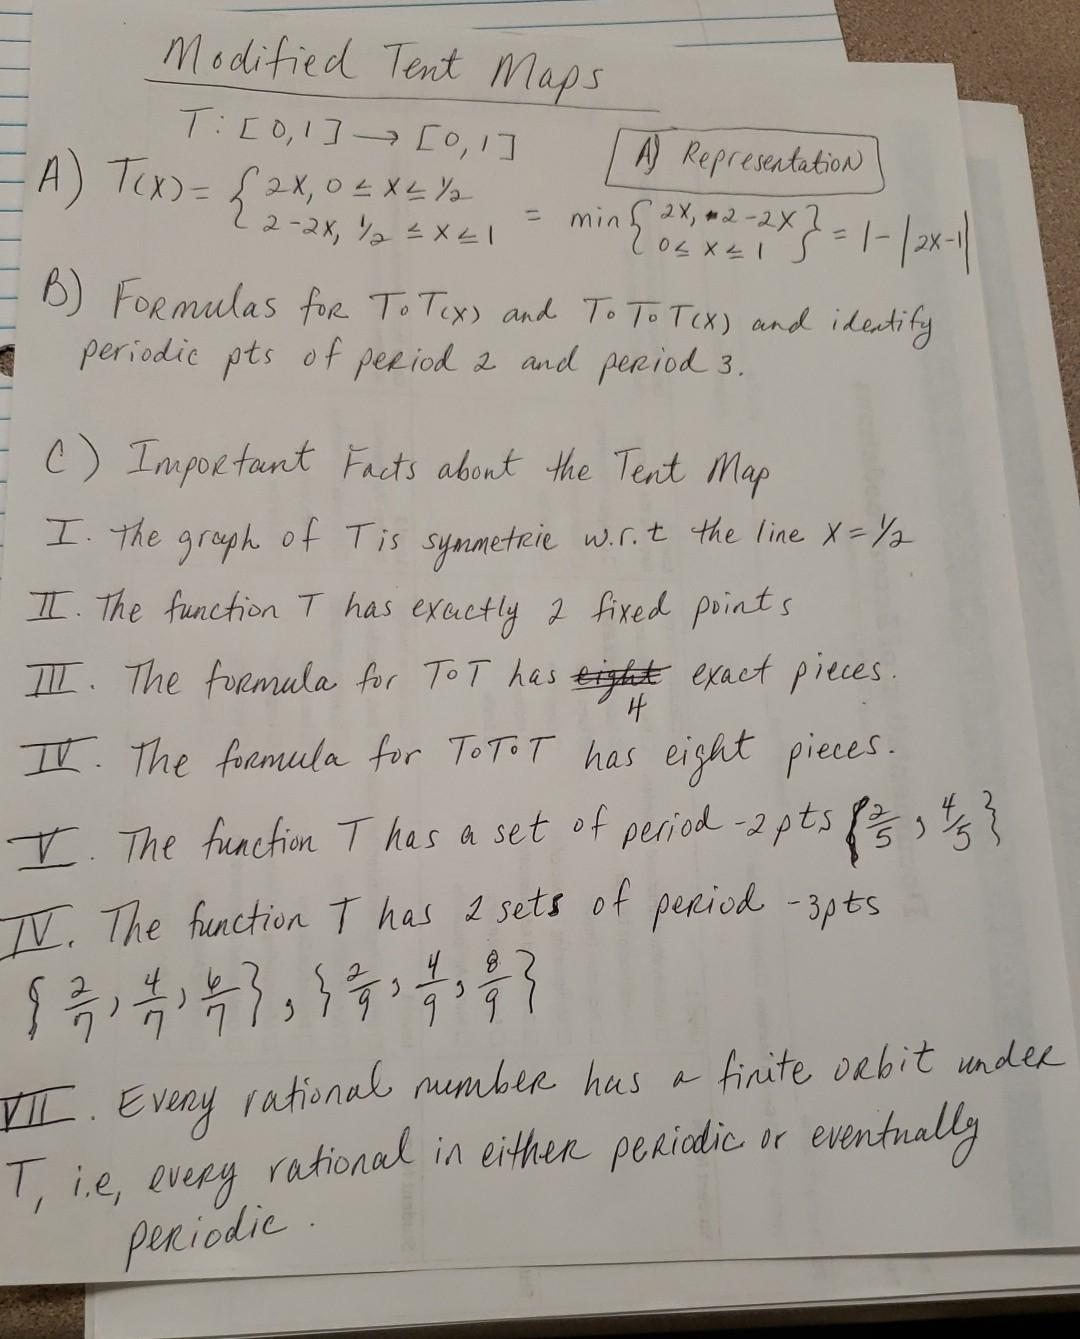 Modified Tent Maps
T: [0,1] → [0,1]
A) Representation
A) T(x) = { 2x, 0 ≤ x ≤ 1/2
2-2x, 1/2 ≤ x ≤ 1
= min { 2x, 2-2x } = 1-|2x-1|
0 ≤ x ≤ 1
B) Formulas for T∘T(x) and T∘T∘T(x) and identify
periodic pts of period 2 and period 3.
C) Important Facts about the Tent Map
I. The graph of T is symmetric w.r.t the line x=1/2
II. The function T has exactly 2 fixed points
III. The formula for T∘T has eight exact pieces.
4
IV. The formula for T∘T∘T has eight pieces.
V. The function T has a set of period-2pts {2/5, 4/5}
IV. The function T has 2 sets of period-3pts
{2/7, 4/7, 6/7}, {2/9, 4/9, 8/9}
VII. Every rational number has a finite orbit under
T, i.e, every rational in either periodic or eventually
periodic.